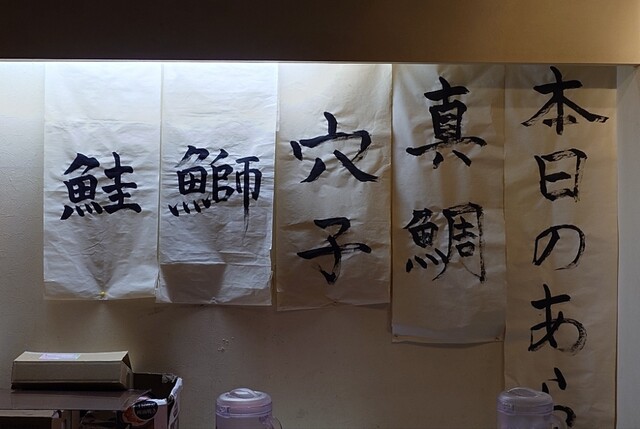 本日のあら
真鯛
穴子
鰤
鮭